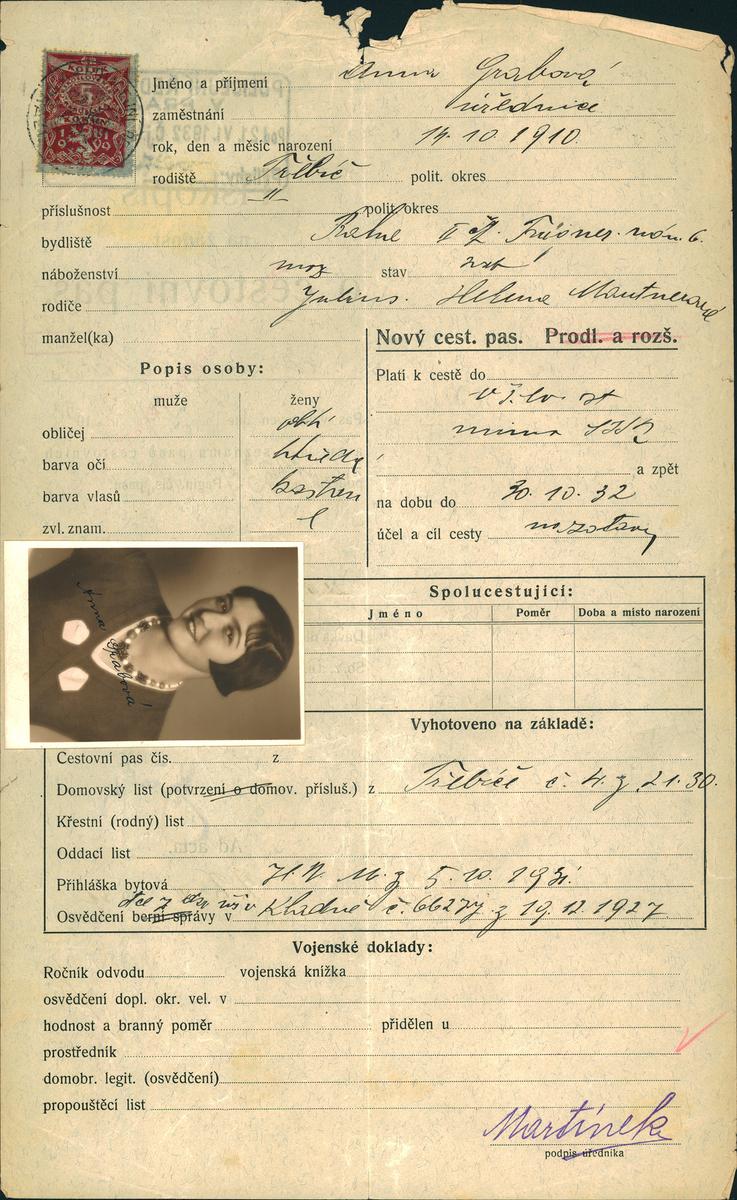 Jméno a příjmení Anna Grabová
zaměstnání úřednice
rok, den a měsíc narození 14. 10. 1910.
rodiště Třebíč polit. okres
příslušnost " polit. okres
bydliště
náboženství moz stav
rodiče Julius. Helena Mautnerová
manžel(ka)
Nový cest. pas. Prodl. a rozš.
Popis osoby:
muže ženy
obličej
barva očí hnědé
barva vlasů kaštan
zvl. znam.
Platí k cestě do
mimo
a zpět
na dobu do 30. 10. 32
účel a cíl cesty na zotav
Anna Grabová
Spolucestující:
Jméno Poměr Doba a místo narození
Vyhotoveno na základě:
Cestovní pas čís. z
Domovský list (potvrzení o domov. přísluš.) z Třebíče č. 4. z 21.30.
Křestní (rodný) list
Oddací list
Přihláška bytová 5. 10. 1931.
Osvědčení berní správy v Kladně č. 66277 z 19. 12. 1927
Vojenské doklady:
Ročník odvodu vojenská knížka
osvědčení dopl. okr. vel. v
hodnost a branný poměr přidělen u
prostředník
domobr. legit. (osvědčení)
propouštěcí list
Martínek
podpis úředníka